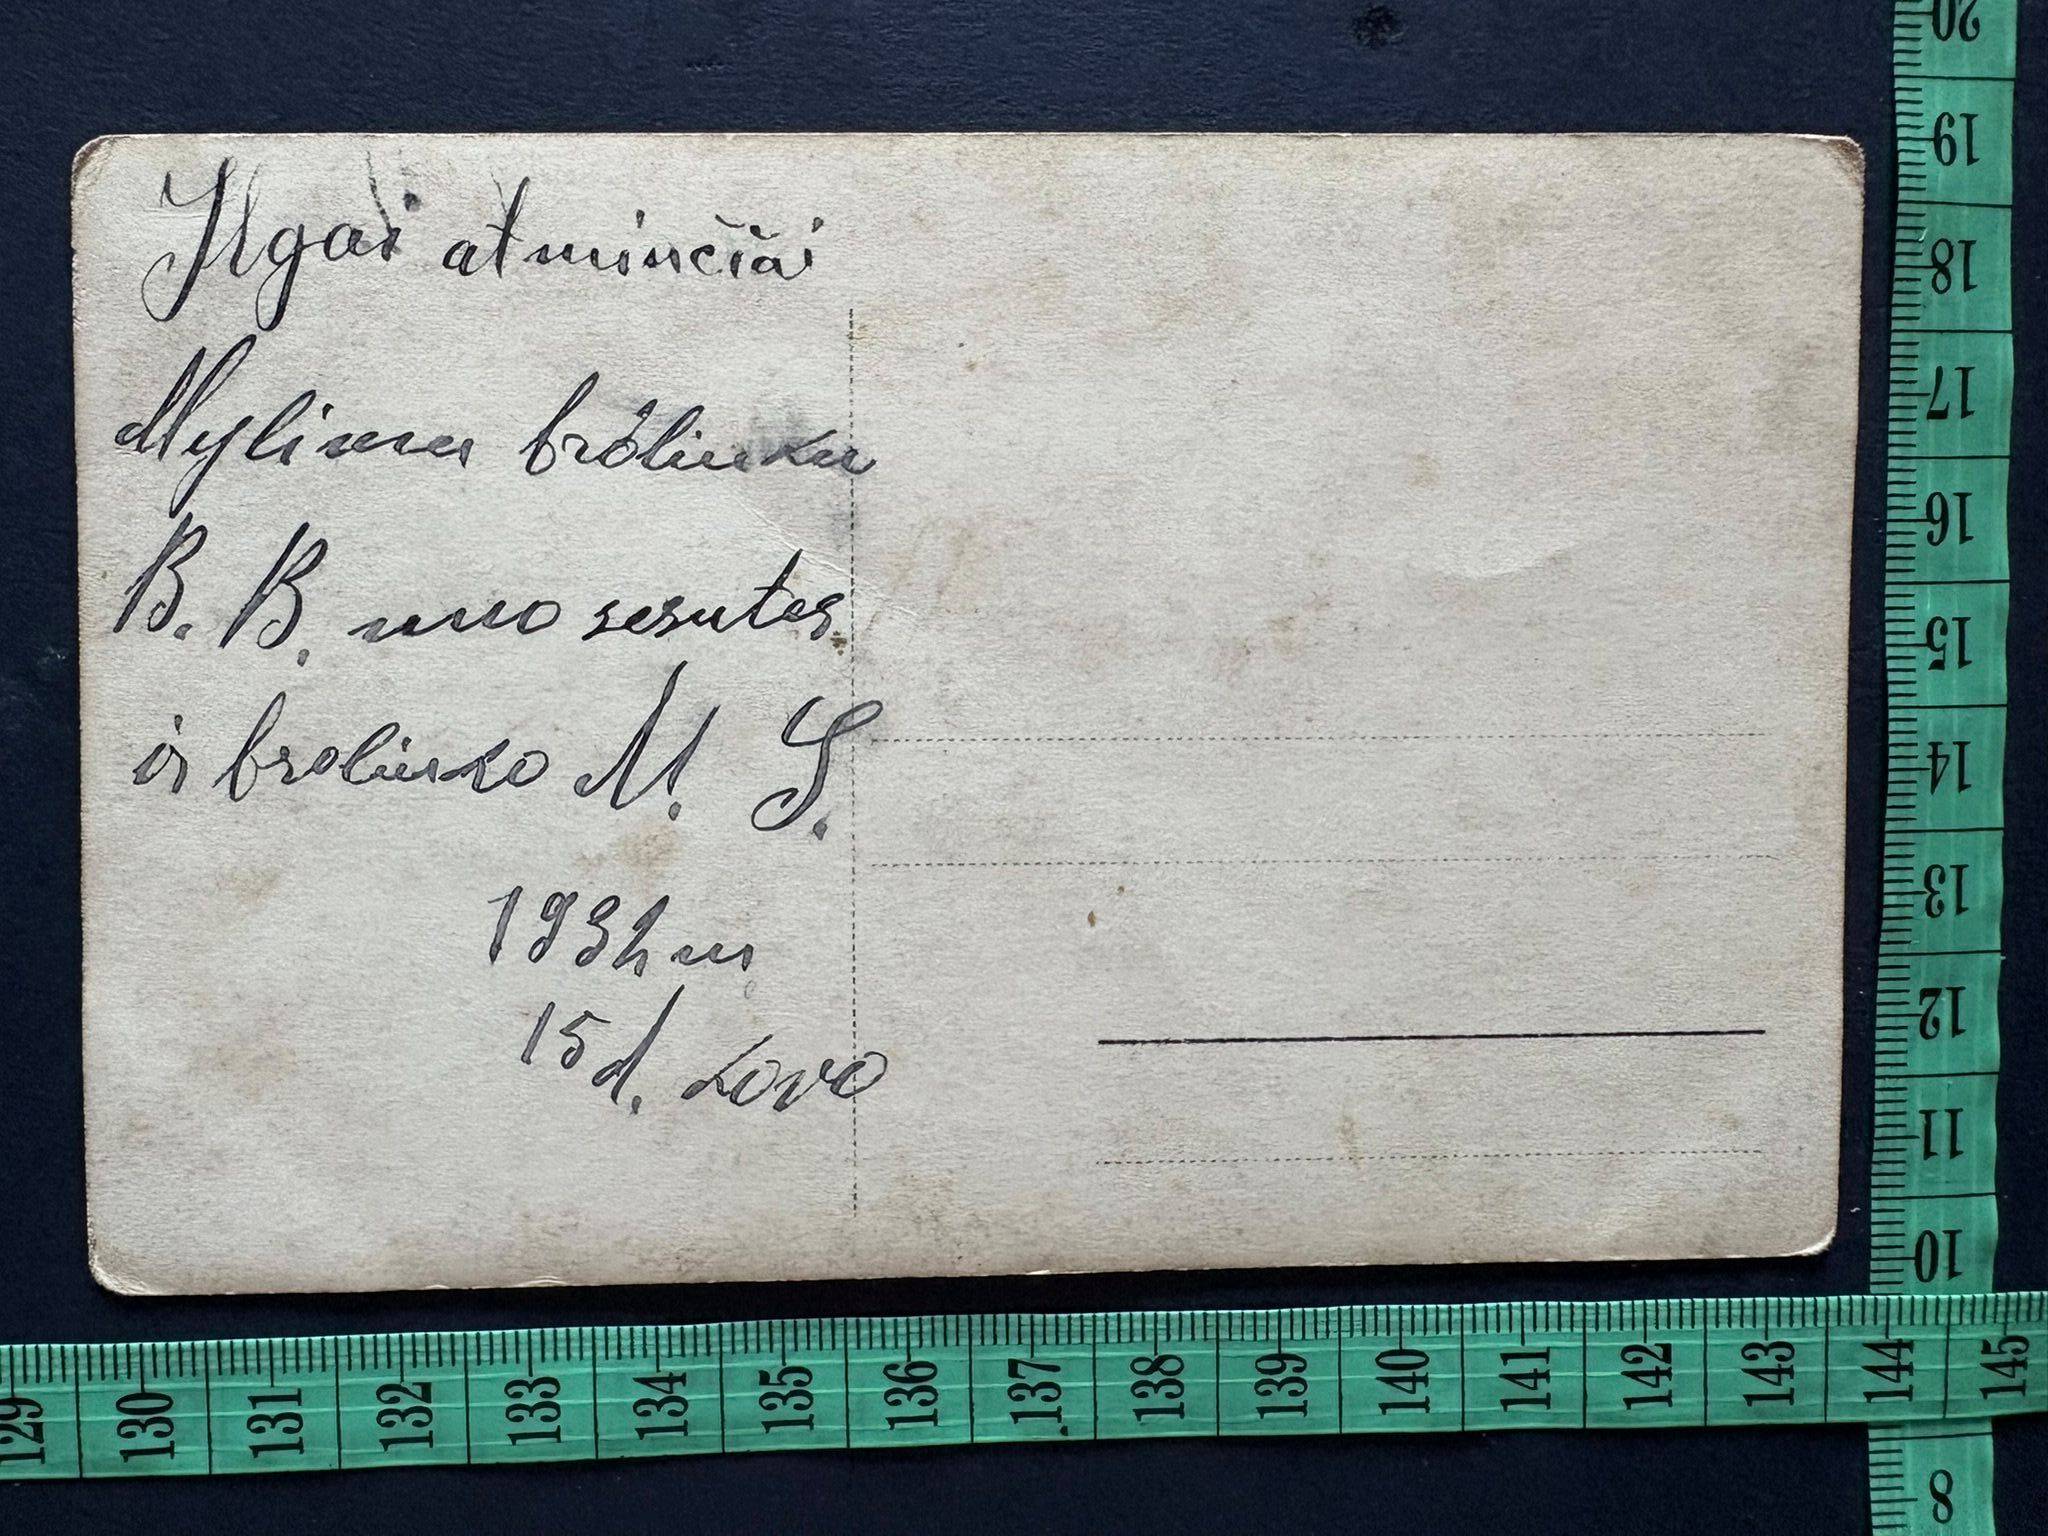 Ilgai atminčiai
Mylimu broliuku
B. B. nuo sesutes
ir broliuko M. S.
193 m
15 d. kovo
20
19
18
17
16
15
14
13
12
11
10
8
129 130 131 132 133 134 135 136 137 138 139 140 141 142 143 144 145